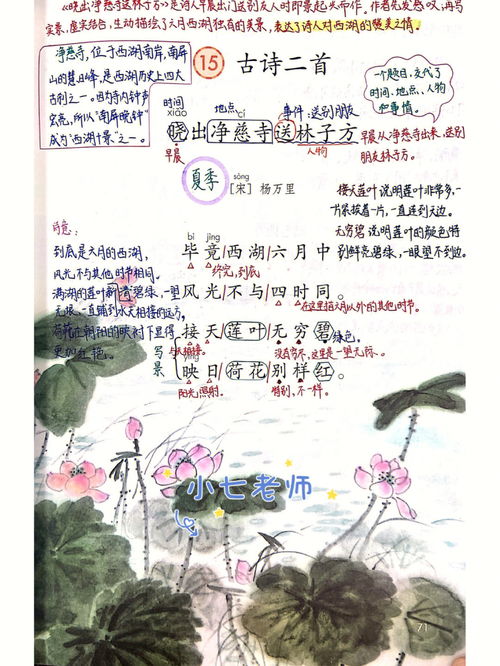 《晓出净慈寺送林子方》是诗人早晨出门送别友人时即景起兴而作。作者先发感叹,再写
实景,虚实结合,生动描绘了六月西湖独有的美景,表达了诗人对西湖的赞美之情。
净慈寺,位于西湖南岸,南屏
山的慧日峰,是西湖历史上四大
古刹之一。因寺内钟声
宏亮,所以"南屏晚钟"
成为"西湖十景"之一。
15 古诗二首
一个题目,交代了
时间、地点、人物
和事情。
时间 地点 事件:送别朋友
xiǎo cí
晓出净慈寺送林子方
早晨 人物
早晨从净慈寺出来,送别
朋友林子方。
夏季
sòng
[宋] 杨万里
接天莲叶说明莲叶非常多,一
片紧挨着一片,一直连到天边。
无穷碧说明莲叶的颜色特
别鲜亮碧绿,一眼望不到边。
诗意:
到底是六月的西湖,
风光不与其他时节相同。
满湖的莲叶碧绿,一望
无垠,一直铺到水天相接的远方,
荷花在朝阳的映衬下显得
更加红艳。
bì jìng
毕竟/西湖/六月中
终究,到底
风光/不与/四时同。
在这里指六月以外的其他时节。
qióng
接天/莲叶/无穷/碧
与天相接。 没有穷尽,这里是一望无际。 绿色。
写景
映日/荷花/别样/红。
阳光,照射。 特别,不一样。
小七老师
71